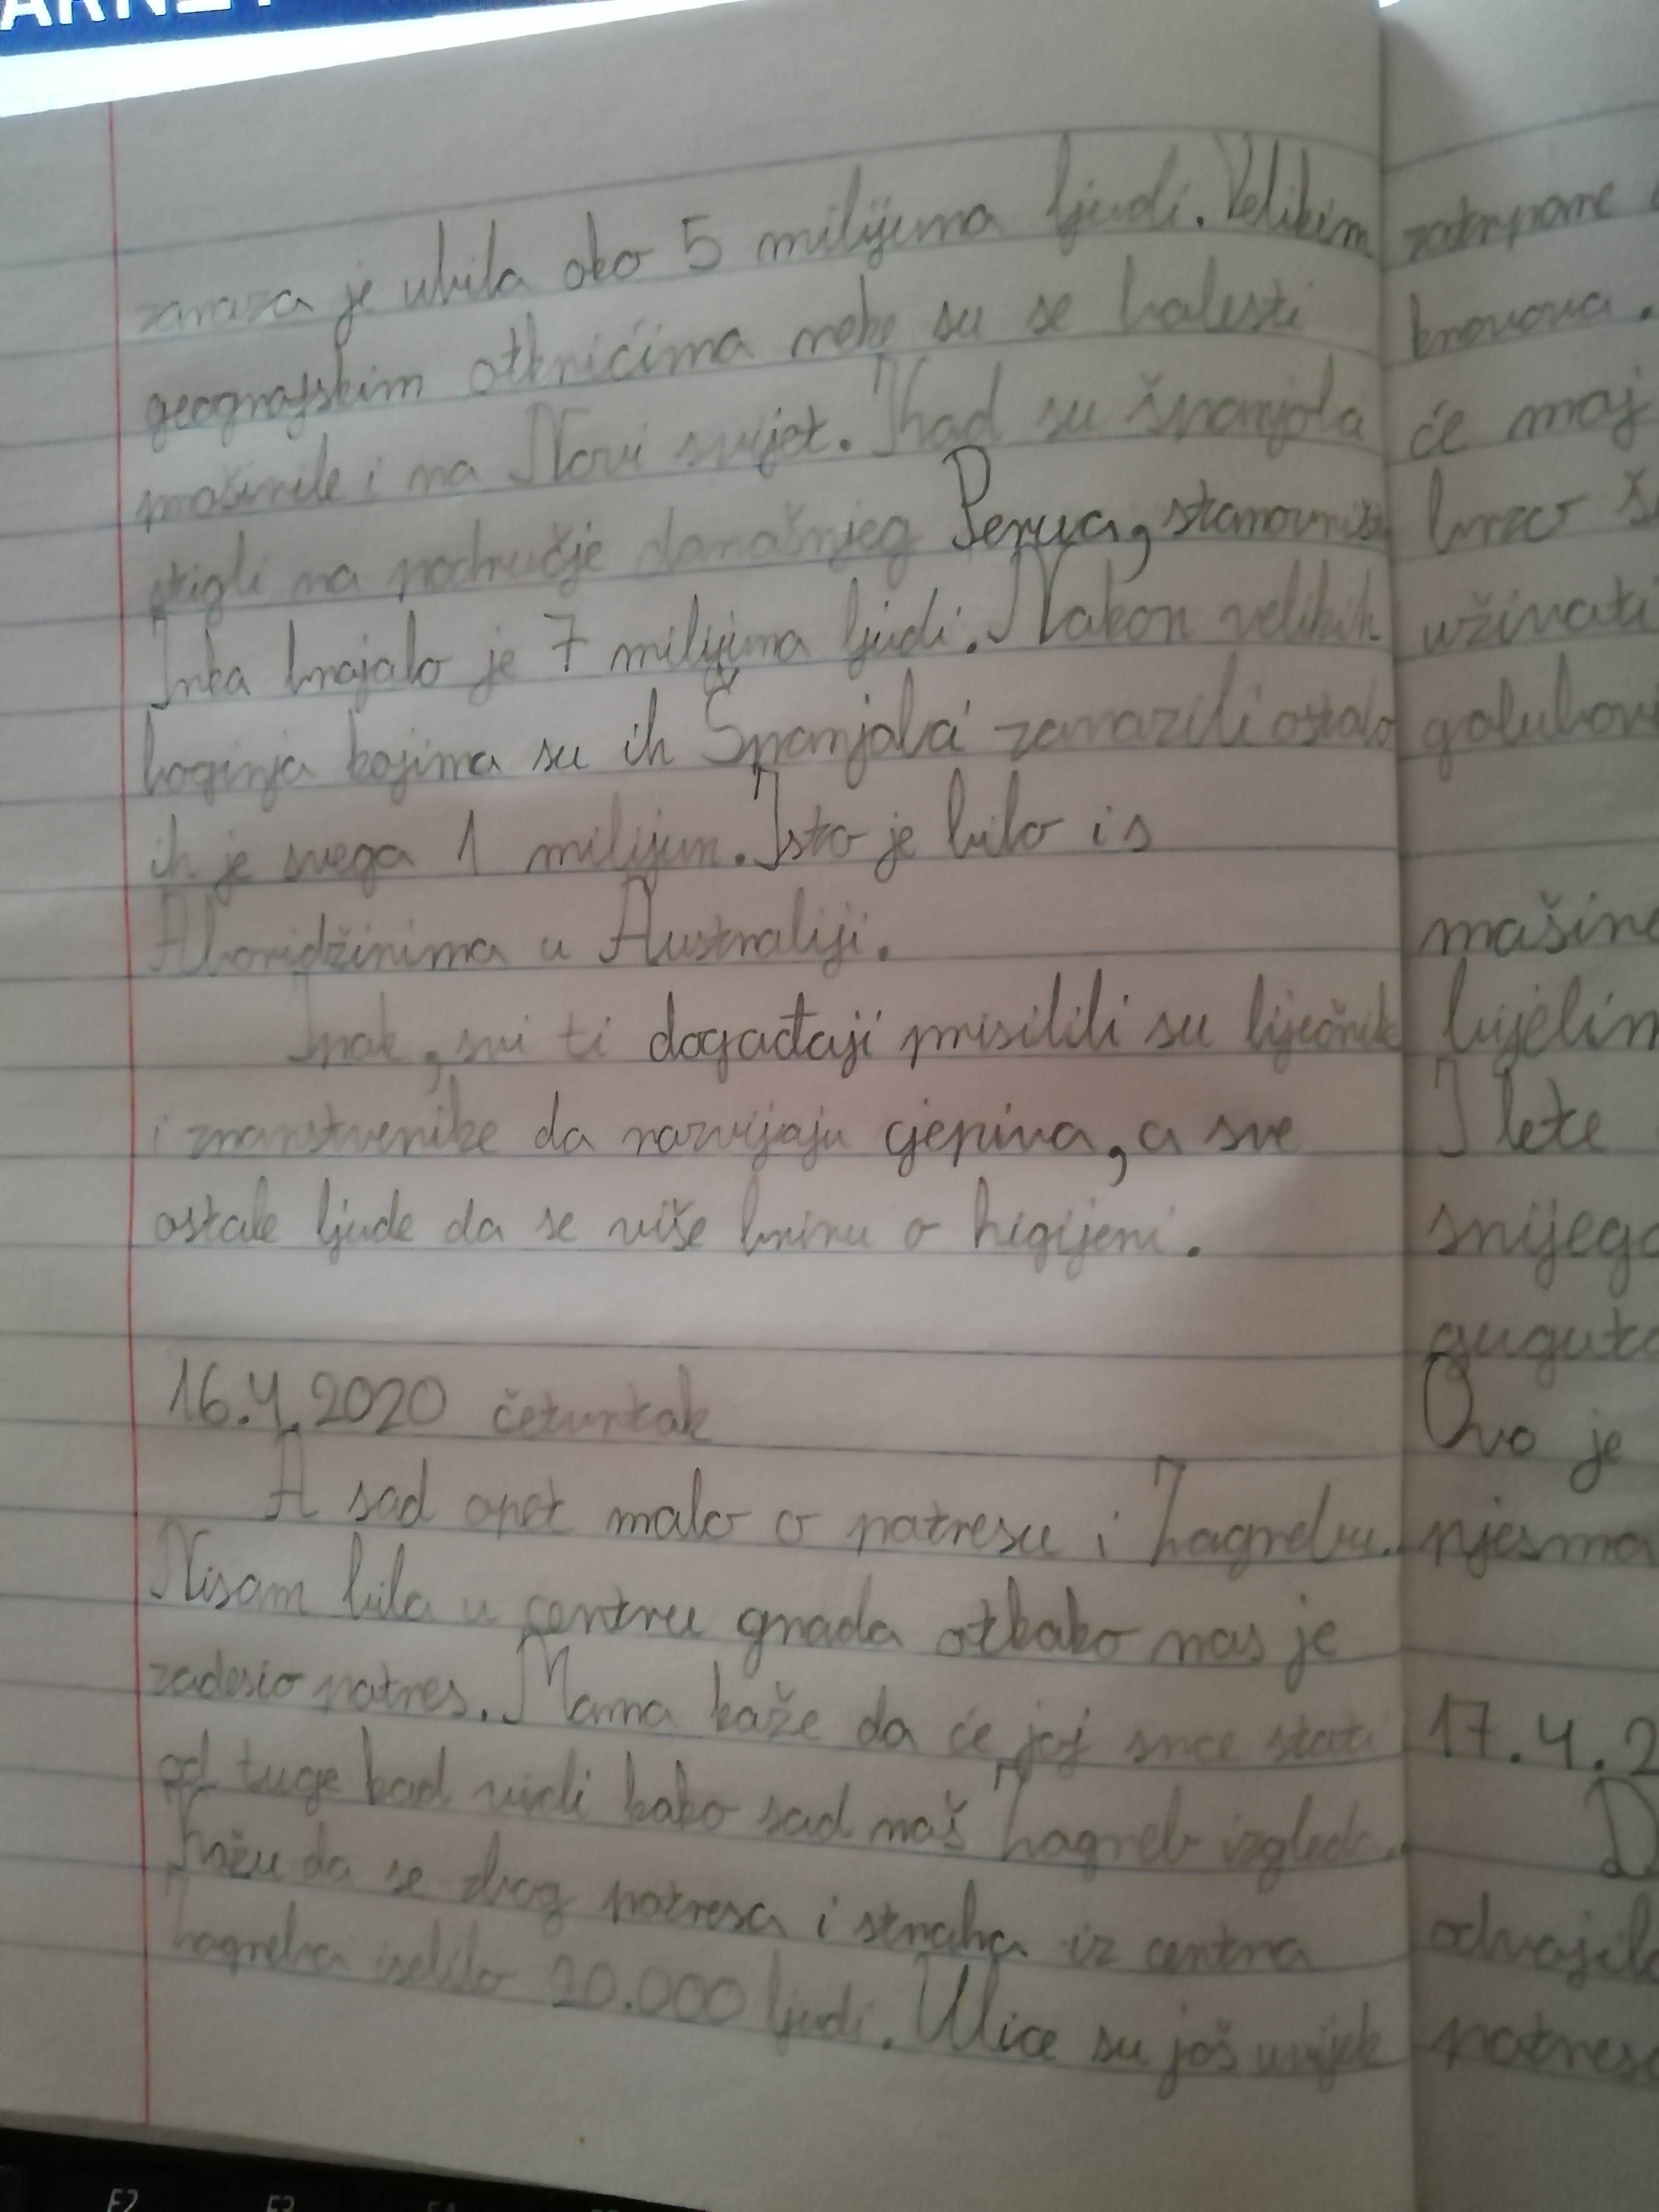 zaraza je ubila oko 5 milijuna ljudi. Velikim
geografskim otkrićima neke su se bolesti
proširile i na Novi svijet. Kad su španjolci
stigli na područje današnjeg Perua, stanovništ
Inka brojalo je 7 milijuna ljudi. Nakon velikih
boginja kojima su ih Španjolci zarazili ostalo
ih je svega 1 milijun. Isto je bilo i s
Aboridžinima u Australiji.
Ipak, svi ti događaji prisilili su liječnike
i znanstvenike da razvijaju cjepiva, a sve
ostale ljude da se više brinu o higijeni.
16.4.2020 četvrtak
A sad opet malo o potresu i Zagrebu.
Nisam bila u centru grada otkako nas je
zadesio potres. Mama kaže da će joj srce stati
od tuge kad vidi kako sad naš Zagreb izgleda.
Kažu da se zbog potresa i straha iz centra
Zagreba iselilo 20.000 ljudi. Ulice su još uvijek
zatrpane
krovova.
će moj
brzo
uživati
golubovi
mašine
bijelim
I lete
snijego
guguto
Ovo je
pjesma
17.4.2
D
odvojilo
potresa
F2
F3